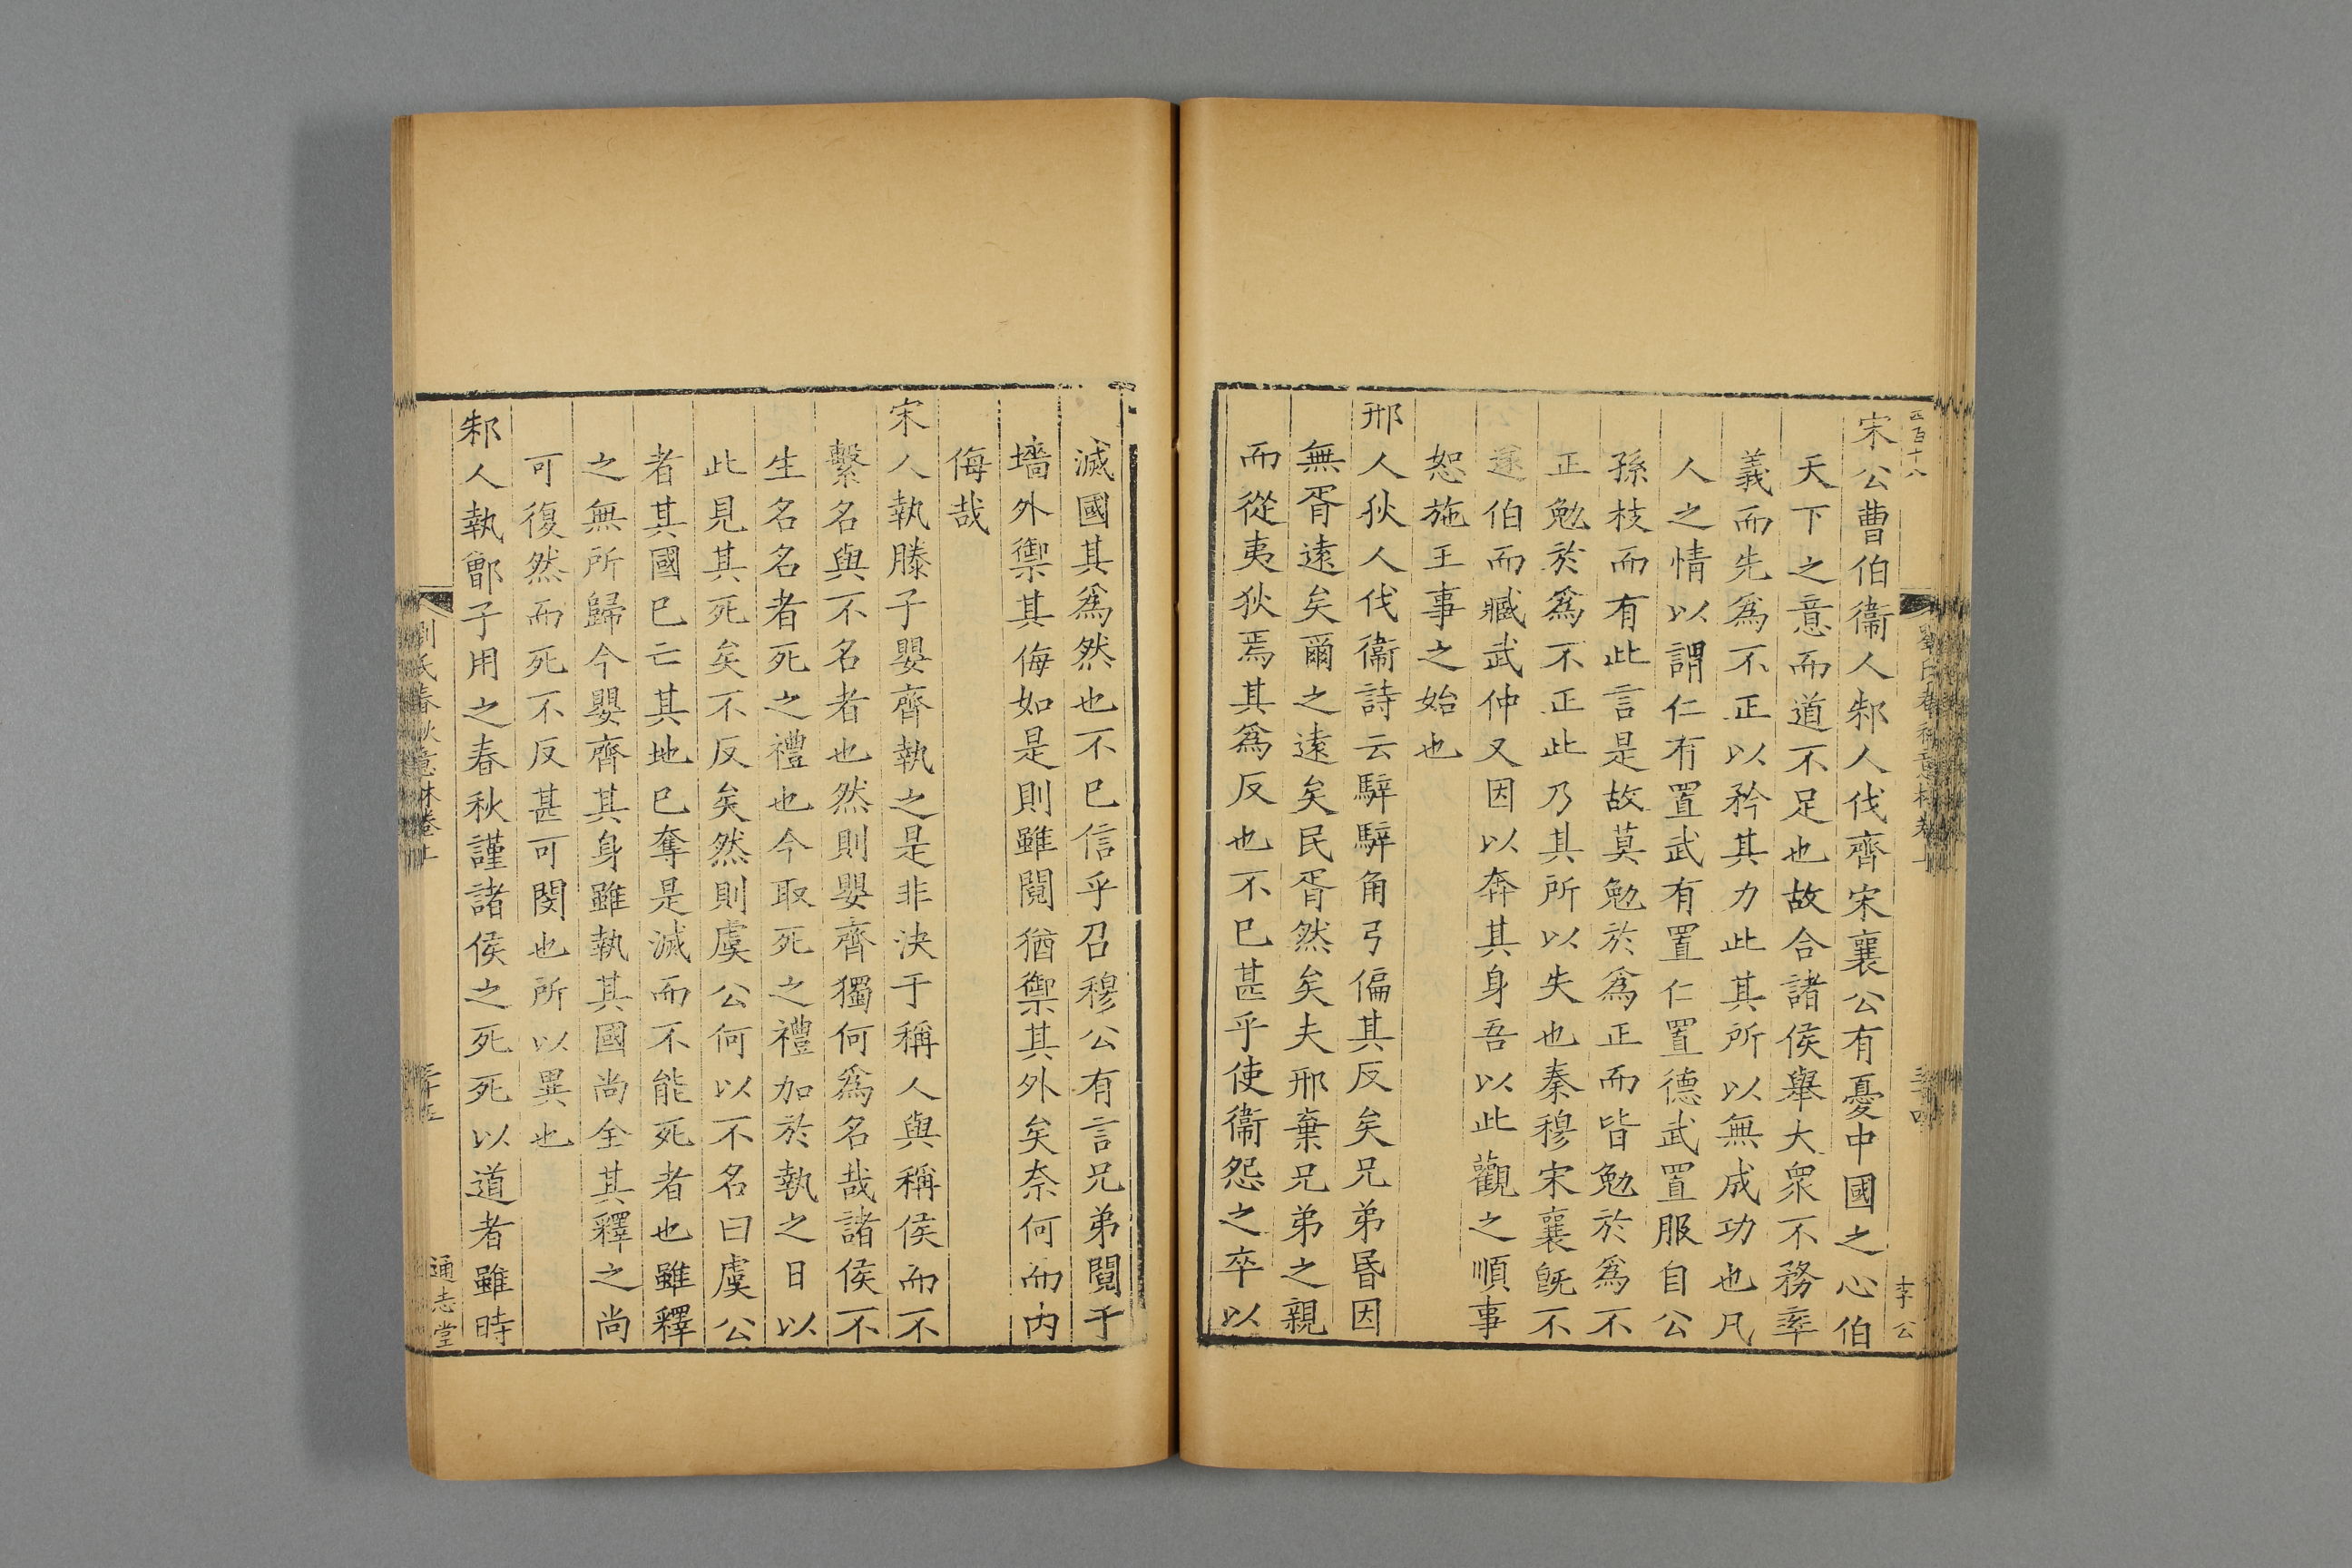 四百十八
宋公曹伯衞人邾人伐齊宋襄公有憂中國之心伯
天下之意而道不足也故合諸侯舉大衆不務率
義而先爲不正以矜其力此其所以無成功也凡
人之情以謂仁有置武有置仁置德武置服自公
孫枝而有此言是故莫勉於爲正而皆勉於爲不
正勉於爲不正此乃其所以失也秦穆宋襄旣不
遂伯而臧武仲又因以奔其身吾以此觀之順事
恕施王事之始也
邢人狄人伐衞詩云騂騂角弓偏其反矣兄弟昬因
無胥遠矣爾之遠矣民胥然矣夫邢棄兄弟之親
而從夷狄焉其爲反也不已甚乎使衞怨之卒以
滅國其爲然也不已信乎召穆公有言兄弟䦧于
墻外禦其侮如是則雖䦧猶禦其外矣奈何而内
侮哉
宋人執滕子嬰齊執之是非決于稱人與稱侯而不
繫名與不名者也然則嬰齊獨何爲名哉諸侯不
生名名者死之禮也今取死之禮加於執之日以
此見其死矣不反矣然則虞公何以不名曰虞公
者其國已亡其地已奪是滅而不能死者也雖釋
之無所歸今嬰齊其身雖執其國尚全其釋之尚
可復然而死不反甚可閔也所以異也
邾人執鄫子用之春秋謹諸侯之死死以道者雖時
劉氏春秋意林卷上
三十五
通志堂